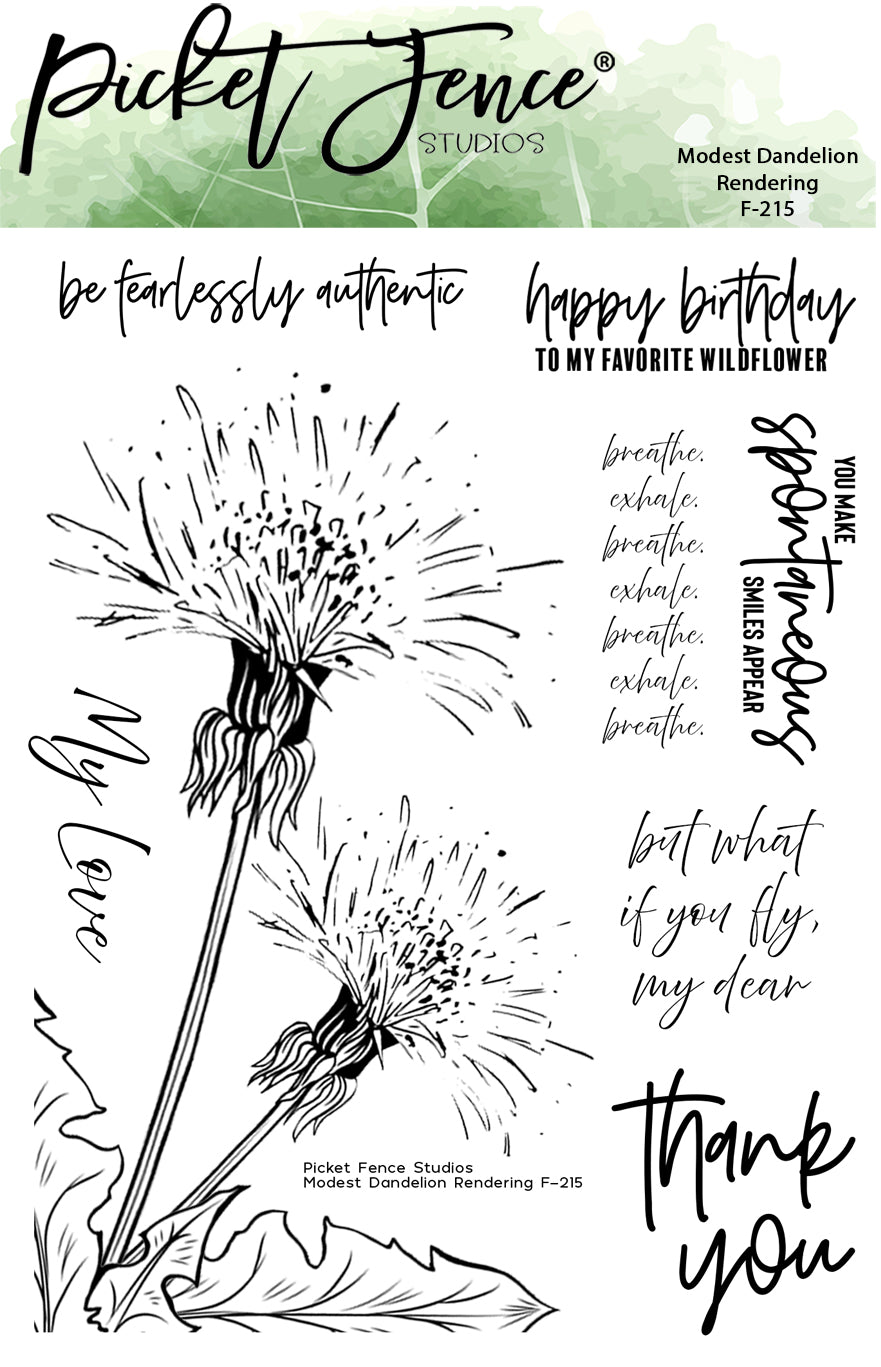 Picket Fence®
STUDIOS
Modest Dandelion
Rendering
F-215
be fearlessly authentic
happy birthday
TO MY FAVORITE WILDFLOWER
breathe.
exhale.
breathe.
exhale.
breathe.
exhale.
breathe.
YOU MAKE
spontaneous
SMILES APPEAR
My Love
but what
if you fly,
my dear
thank
you
Picket Fence Studios
Modest Dandelion Rendering F-215